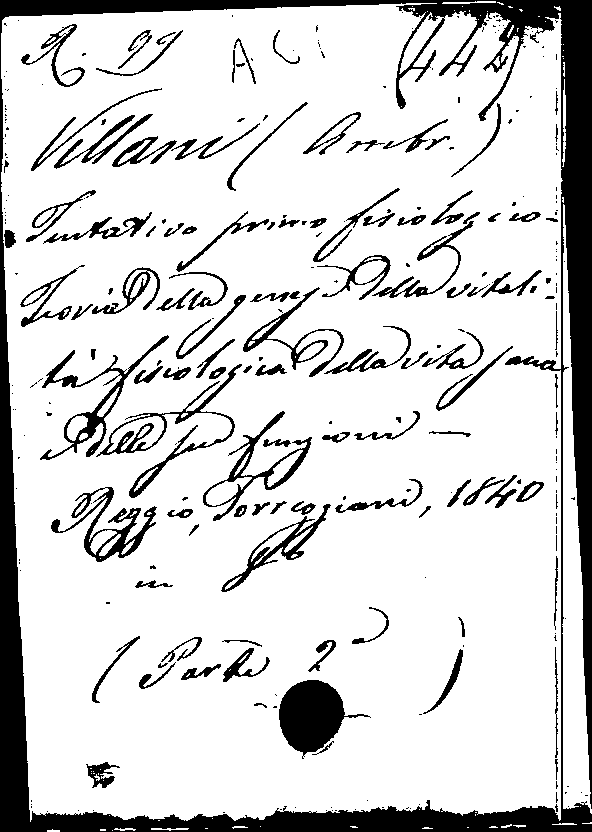 R. 99 ACI (442)
Villani (Ambr.)
Tentativo primo fisiologico-
Teoria della genesi della vitali-
tà fisiologica della vita sana
e delle sue funzioni —
Reggio, Torreggiani, 1840
in
(Parte 2a)